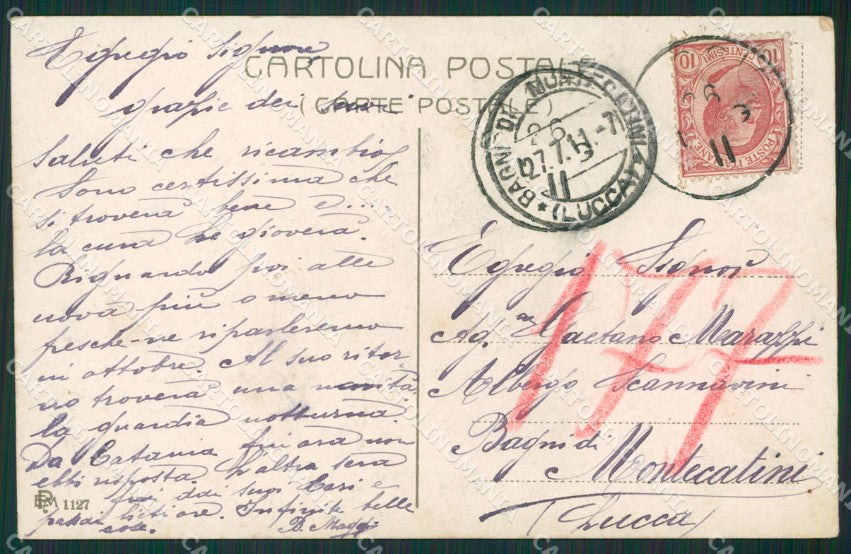 Egregio Signore
CARTOLINA POSTALE
(CARTE POSTALE)
grazie dei suoi
saluti che ricambio
Sono certissima che
si troverà bene e...
la cura le gioverà.
Riguardo poi alle
nova più o meno
fresche ne riparleremo
in ottobre. Al suo ritor
no troverà una novità
la guardia notturna.
Da Catania fin ora non
ebbi risposta. L'altra sera
fui dai suoi Cari e
Infinite belle
cose. B. Maggi
BAGNI DI MONTECATINI
27.7.11-7
11
* (LUCCA) *
POSTE ITALIANE
CENTESIMI 10
11
Egregio Signor
Gaetano Maraffi
Albergo Scannavini
Bagni di
Montecatini
(Lucca)
177
1127
CARTOLINOMANIA